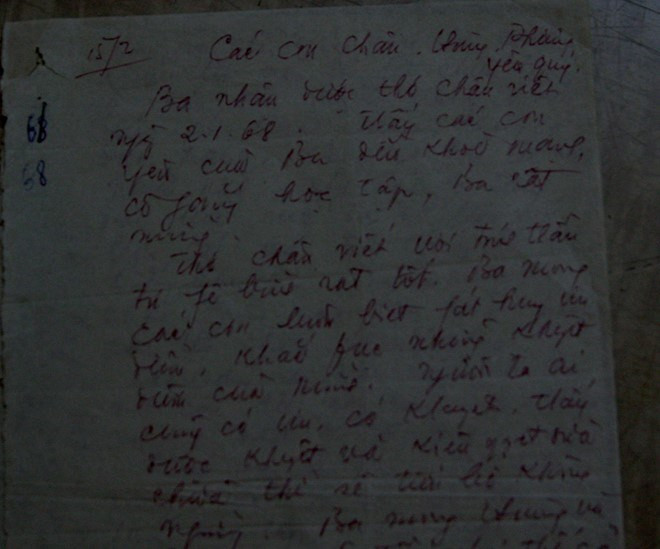 15/2 Các con Chân, Hùng,
yêu quý.
Ba nhận được thơ Chân viết
ngày 2.1.68. Thấy các con
68
yêu của Ba đều khoẻ mạnh,
68
cố gắng học tập, Ba rất
mừng.
Thơ Chân viết với tinh thần
tự phê bình rất tốt. Ba mong
các con luôn biết phát huy ưu
điểm, khắc phục những khuyết
điểm của mình. Người ta ai
cũng có ưu, có khuyết. Thấy
được khuyết và kiên quyết sửa
chữa thì sẽ tiến bộ không
ngừng. Ba mong và